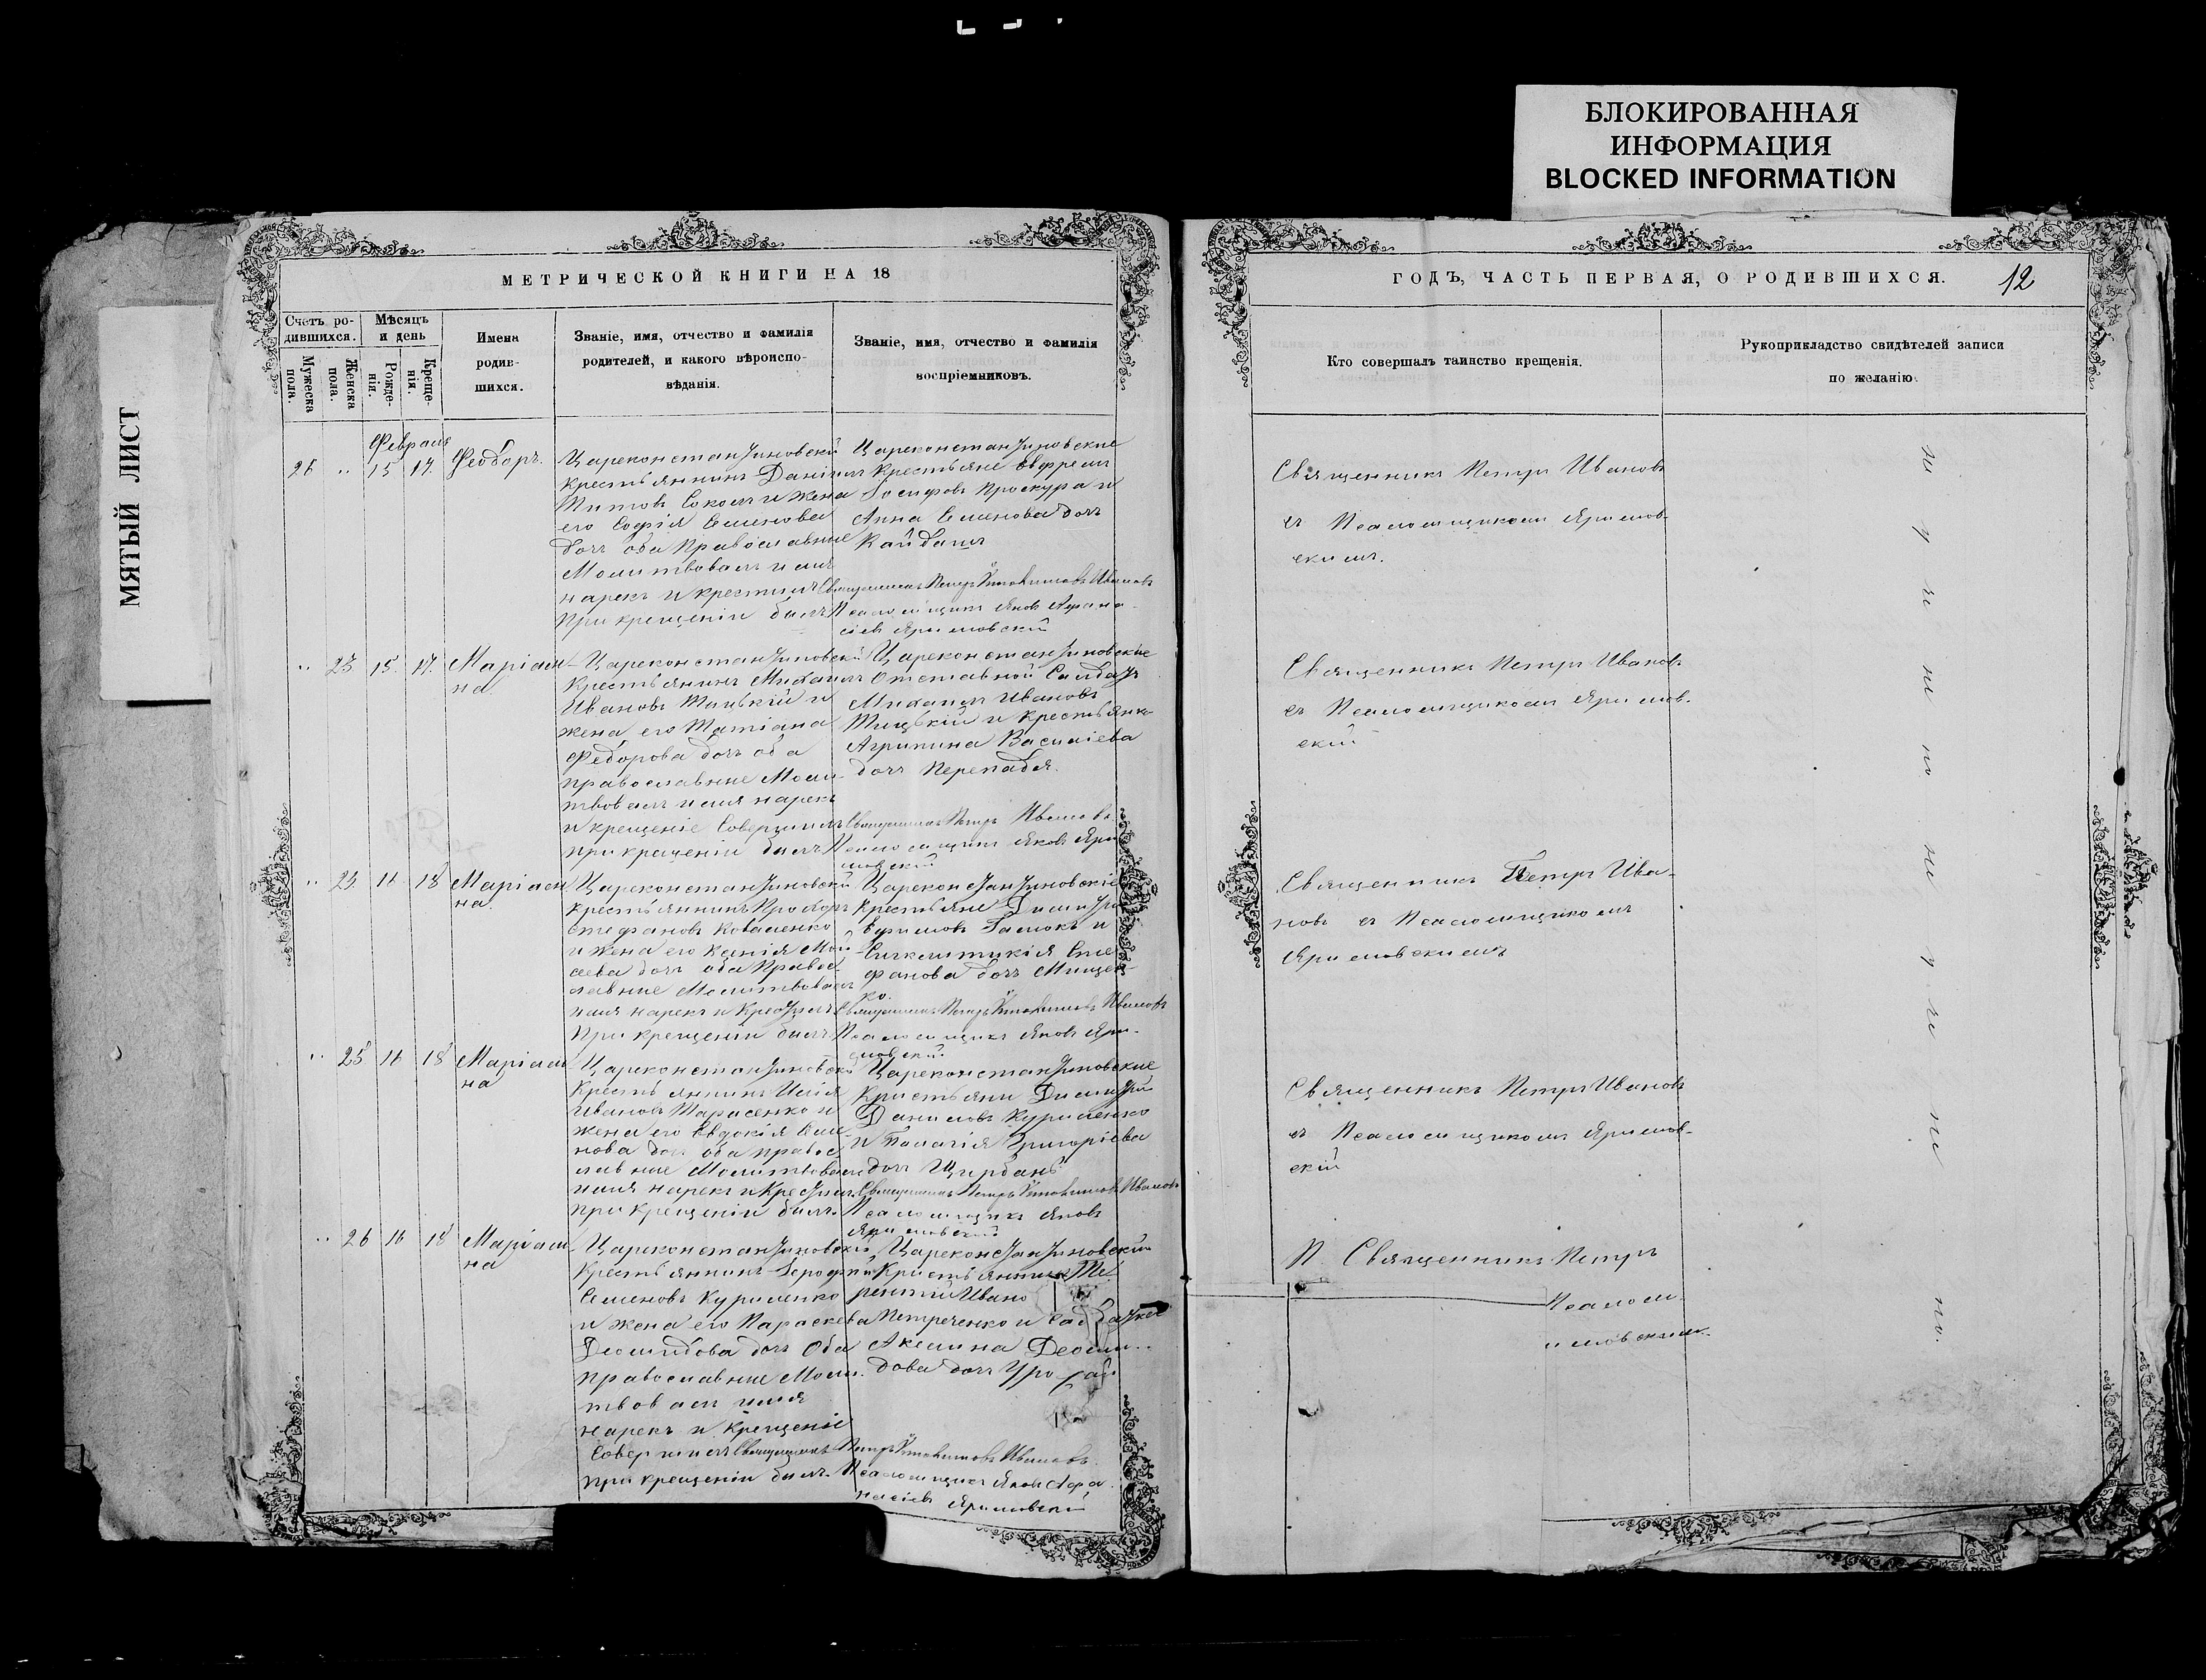 БЛОКИРОВАННАЯ
ИНФОРМАЦИЯ
BLOCKED INFORMATION
МЯТЫЙ ЛИСТ
МЕТРИЧЕСКОЙ КНИГИ НА 18
Счетъ ро-
дившихся.
Мужеска
пола.
Женска
пола.
Мѣсяцъ
и день
Рожде-
нія.
Креще-
нія.
Имена
родив-
шихся.
Званіе, имя, отчество и фамилія
родителей, и какого вѣроиспо-
вѣданія.
Званіе, имя, отчество и фамилія
воспріемниковъ.
Февраля
26 " 15 17. Феодоръ.
Цареконстантиновскій
крестьянинъ Даніилъ
Титовъ Соколъ и жена
его Софія Семенова
дочь оба православные
Молитвовалъ имя
нарекъ и крестилъ
При крещеніи былъ
Цареконстантиновские
Крестьяне Ефремъ
Іосифовъ Проскура и
Анна Семенова дочь
Кайдашъ
Священникъ Петръ Ивановъ
Псаломщикъ Яковъ Афана-
сіевъ Яримовскій
" 23 15. 17. Маріам-
на
Цареконстантиновскій
Крестьянинъ Михаилъ
Ивановъ и
жена его Татіана
Федорова дочь оба
православные Моли-
твовалъ имя нарекъ
и крещеніе Совершилъ
при крещеніи былъ
Цареконстантиновские
Отставной Солдатъ
Михаилъ Ивановъ
и Крестьянка
Агрипина Василіева
дочь Перепадя.
Священникъ Петръ Ивановъ
Псаломщикъ Яковъ Яри-
мовскій
" 18 Маріам
на
Цареконстантиновскій
Крестьянинъ Прохоръ
Стефановъ Коваленко
и жена его Ксенія Мои
сеева дочь оба Правос-
лавные Молитвовалъ
имя нарекъ и Крестилъ
При крещеніи былъ
Цареконстантиновскіе
Крестьяне Димитрій
и
Сте-
фанова дочь Мищен-
ко.
Священникъ Петръ Ивановъ
Псаломщикъ Яковъ Яри-
мовскій
" 25 16 18 Маріам
на
Цареконстантиновскій
Крестьянинъ Илія
Ивановъ Тарасенко и
жена его Евдокія Семе-
нова доч. оба правос
лавные Молитвовалъ
имя нарекъ и Крестилъ
при Крещеніи былъ.
Цареконстантиновские
Кристьяни Димитрій
Даниловъ Куриленко
и Палагія Григоріева
дочь
Священникъ Петръ Ивановъ
Псаломщикъ Яковъ
Яримовскій
" 26 16 18 Маріам
на
Цареконстантиновскій
Крестьянинъ Іерофей
Семеновъ Куриленко
и жена его Параскева
Деомидова дочь Оба
православные Моли-
твовалъ имя
нарекъ и Крещеніе
Совершилъ Священникъ Петръ Ивановъ.
при крещеніи былъ. Псаломщикъ Яковъ Афа-
насіевъ Яримовскій
Цареконстантиновский
Кристьянинъ Те-
рентій Ивано
Петреченко и Солдатка
Акелина Деоми-
дова дочь
ГОДЪ, ЧАСТЬ ПЕРВАЯ, О РОДИВШИХСЯ.
12
Кто совершалъ таинство крещенія.
Рукоприкладство свидѣтелей записи
по желанію.
Священникъ Петръ Ивановъ
съ Псаломщикомъ Яримов-
скимъ.
Священникъ Петръ Ивановъ
съ Псаломщикомъ Яримов-
скій
Священникъ Петръ Ива-
новъ съ Псаломщикомъ
Яримовскимъ
Священникъ Петръ Ивановъ
съ Псаломщикомъ Яримов-
скій
Священникъ Петръ
Псалом
имовскимъ